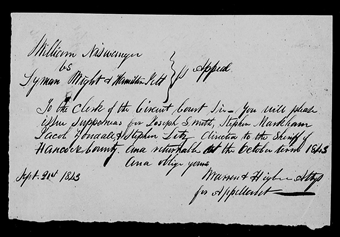 William Niswanger
vs
Lyman Wight & Hamilton Jett } Appeal
To the Clerk of the Circuit Court Sir - You will please
issue Suppoenas for Joseph Smith, Stephen Markham
Jacob & Stephen Litz Directed to the Sheriff of
Hancock County. and returnable at the October term 1843
and oblige yours
Sept. 21st 1843 Warren & Higbee Attys
for Appellant